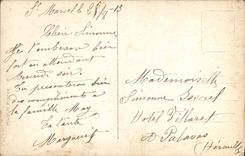 St Marcel le 25/8 - 13
Chère Simonne
Je t'embrasse bien
fort en attendant
Tu présenteras bien
des compliments à
la famille May
Ta tante
Marguerite
Mademoiselle
Simonne
Hotel Villaret
à Palavas
(Hérault)